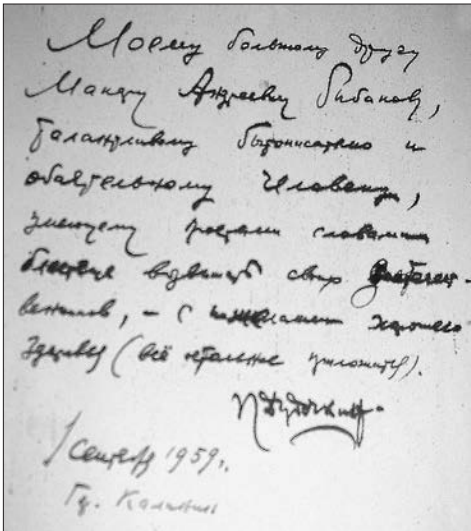 Моему большому другу
Андреевичу Рибанову,
талантливому бытописателю и
обаятельному человеку,
умеющему простыми словами
блестяще своих
– с пожеланием хорошего
здоровья (всё остальное приложится).
1 сентября 1959 г.
Калинин